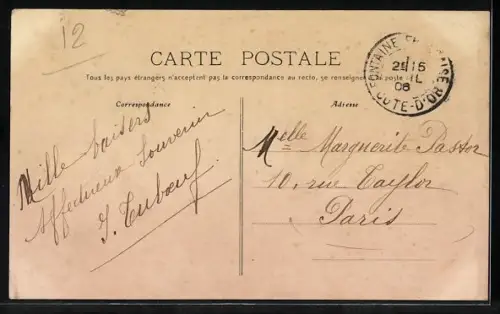 12
CARTE POSTALE
Tous les pays étrangers n'acceptent pas la correspondance au recto, se renseigner à la poste
Correspondance
Adresse
FONTAINE FRANÇAISE
21 15
IL
08
COTE-D'OR
Mille baisers
Affectueux Souvenir
Melle Marguerite Pastor
10, rue Taylor
Paris